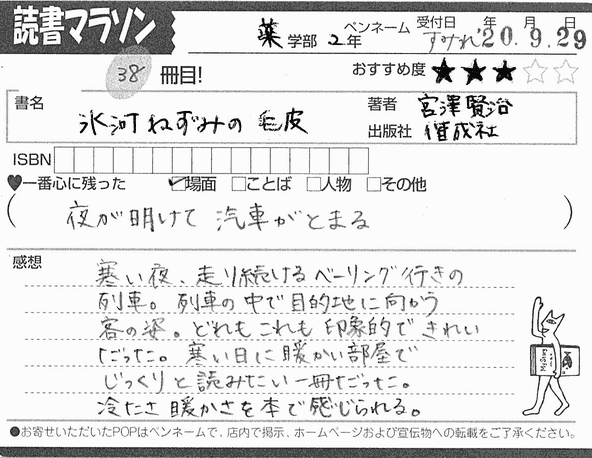 読書マラソン
薬 学部 2年
ペンネーム すみれ
受付日 年 月 日
'20.9.29
38 冊目!
おすすめ度 ★★★☆☆
書名 氷河ねずみの毛皮
著者 宮澤賢治
出版社 偕成社
ISBN
♥一番心に残った ✓場面 □ことば □人物 □その他
(夜が明けて 汽車がとまる)
感想
寒い夜、走り続けるベーリング行きの
列車。列車の中で目的地に向かう
客の姿。どれもこれも印象的できれい
だった。寒い日に暖かい部屋で
じっくりと読みたい一冊だった。
冷たさ暖かさを本で感じられる。
●お寄せいただいたPOPはペンネームで、店内で掲示、ホームページおよび宣伝物への転載をご了承ください。